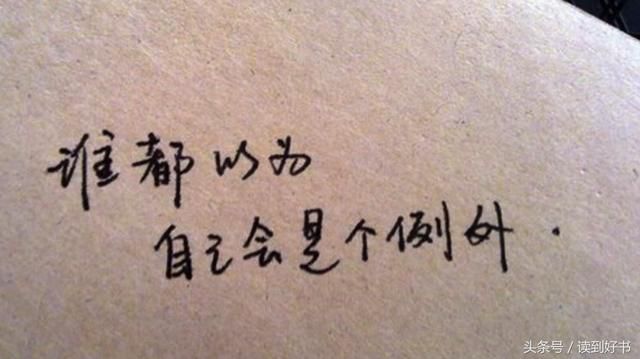 谁都以为
自己会是个例外.
头条号/读到好书